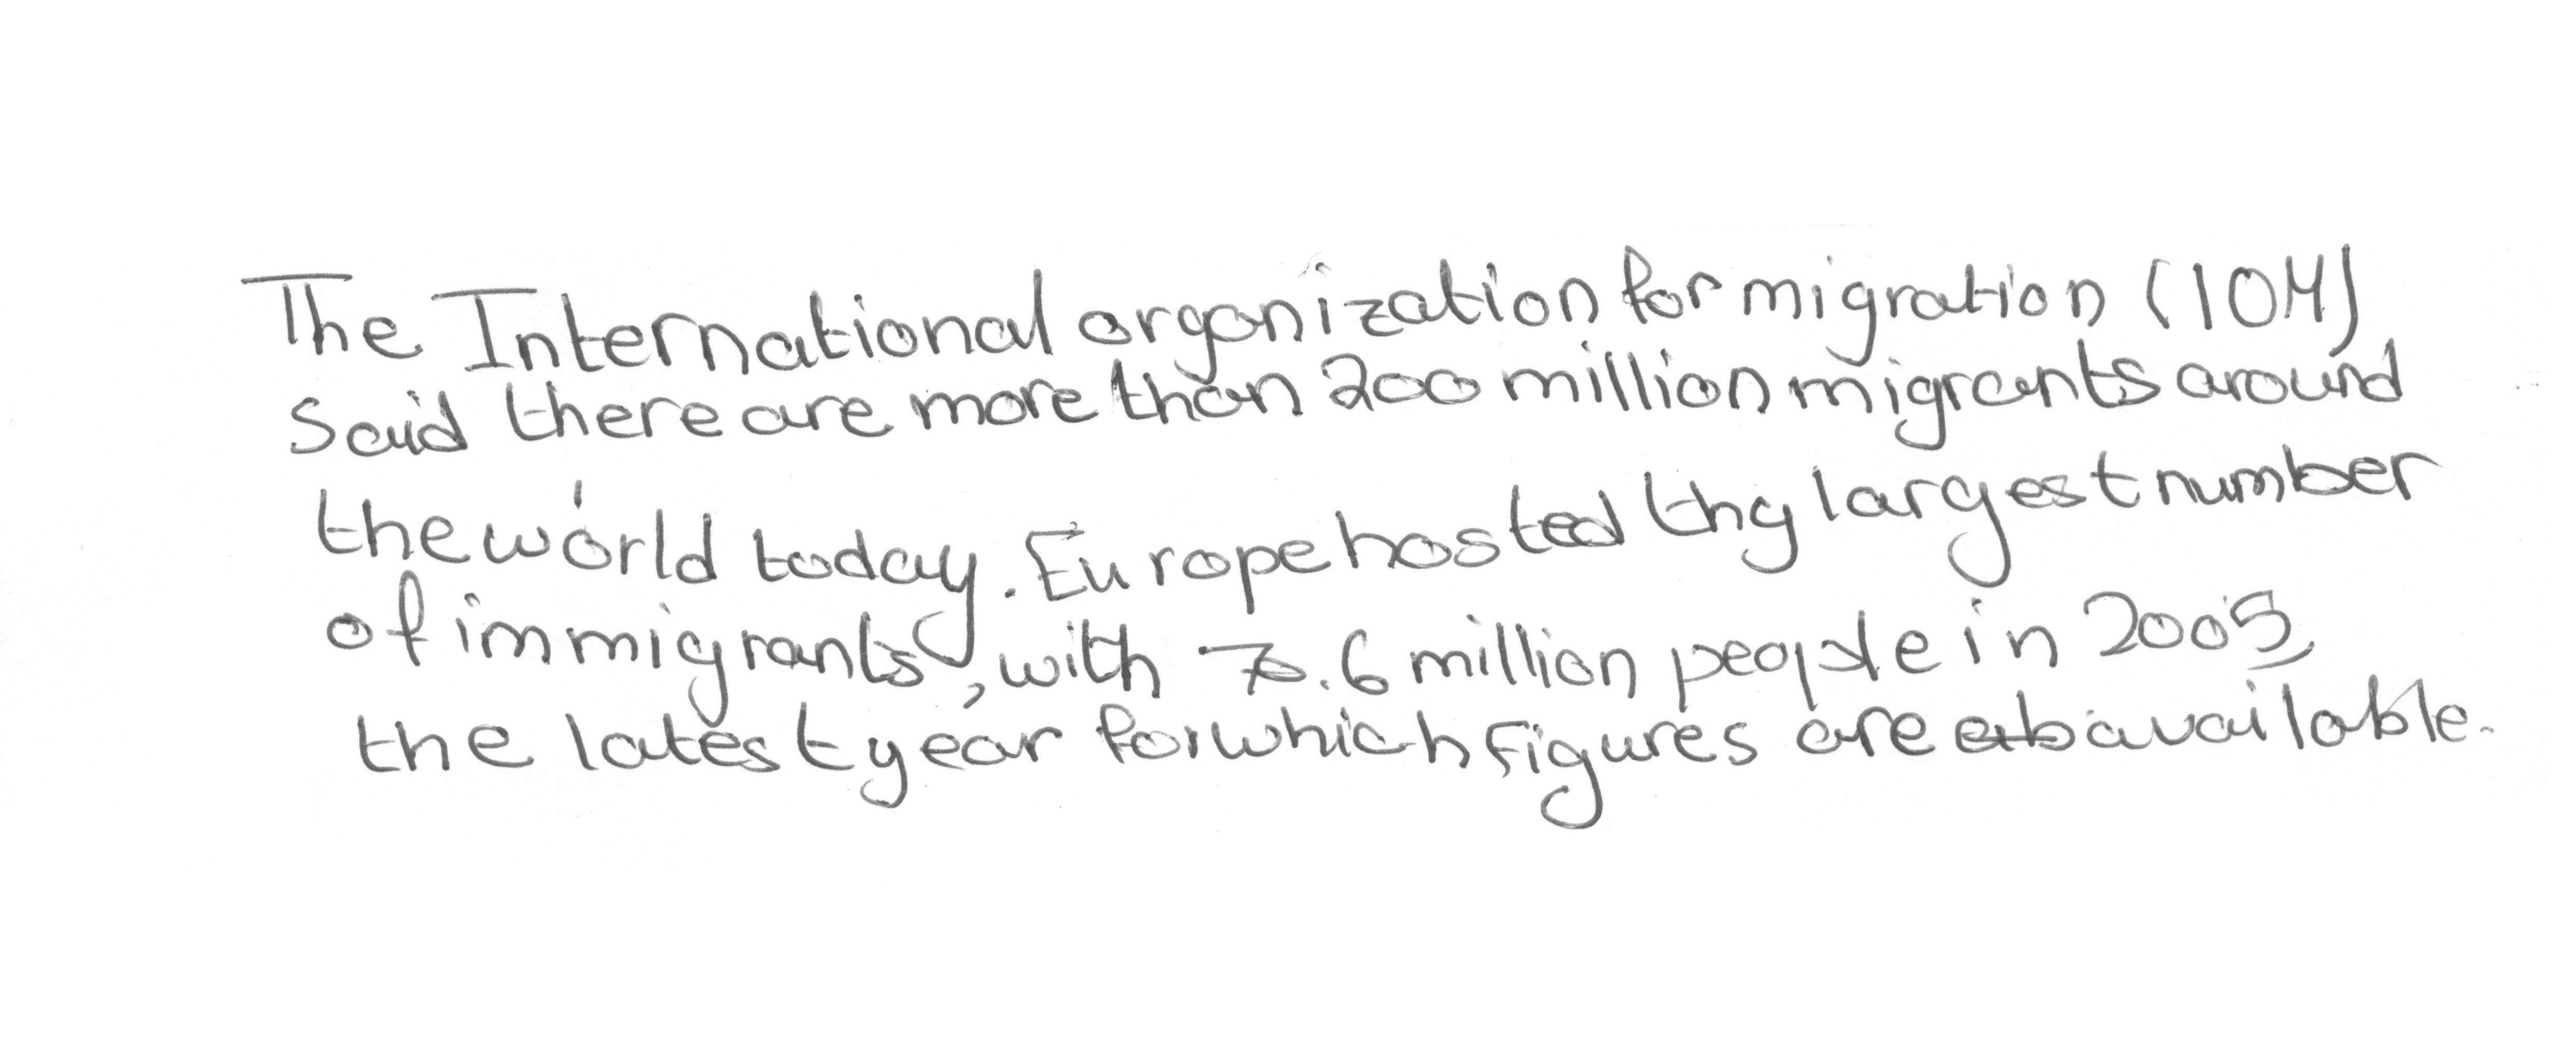 The International organization for migration (IOM)
said there are more than 200 million migrants around
the world today. Europe hosted thy largest number
of immigrants, with 70.6 million people in 2005,
the latest year for which figures are available.